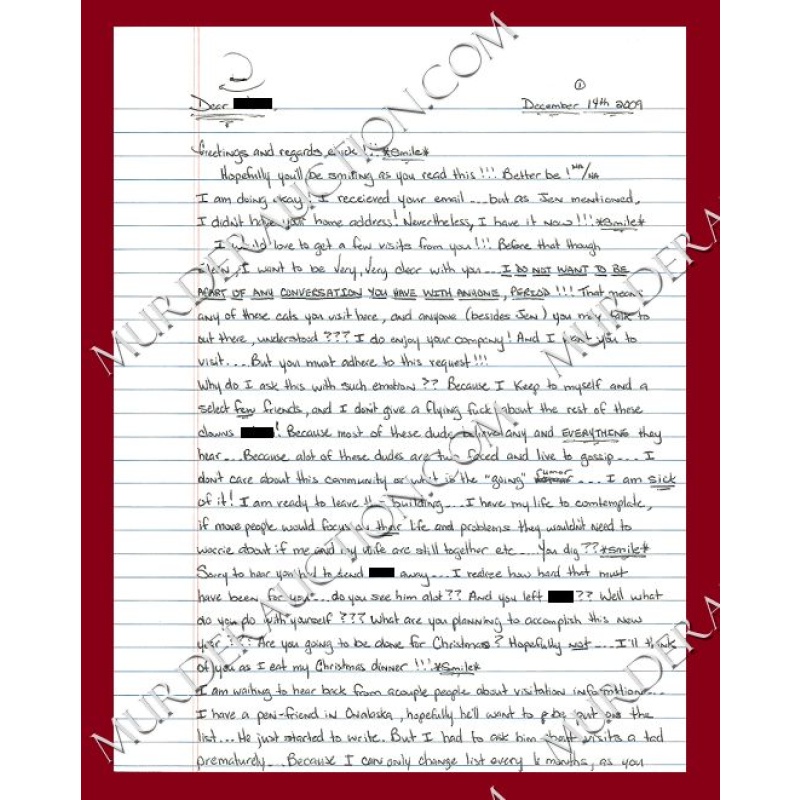 ①
Dear
December 14th 2009
Greetings and regards, chick!!! *Smile*
Hopefully you'll be smiling as you read this!!! Better be! HA/HA
I am doing okay! I receieved your email...but as Jen mentioned,
I didn't have your home address! Nevertheless, I have it now!!! *Smile*
I would love to get a few visits from you!!! Before that though
I want to be very, very clear with you... I DO NOT WANT TO BE
APART OF ANY CONVERSATION YOU HAVE WITH ANYONE, PERIOD!!! That means
any of these cats you visit here, and anyone (besides Jen) you may talk to
out there, understood??? I do enjoy your company! And I want you to
visit....But you must adhere to this request!!!
Why do I ask this with such emotion?? Because I keep to myself and a
select few friends, and I don't give a flying fuck about the rest of these
clowns ! Because most of these dudes believe any and EVERYTHING they
hear...Because alot of these dudes are two faced and live to gossip....I
don't care about this community or what is the "going" rumor ....I am sick
of it! I am ready to leave the building....I have my life to comtemplate,
if more people would focus on their life and problems they wouldn't need to
worrie about if me and my wife are still together etc....You dig?? *smile*
Sorry to hear you had to send away....I realize how hard that must
have been for you....do you see him alot?? And you left ?? Well what
do you do with yourself??? What are you planning to accomplish this new
year??? Are you going to be alone for Christmas? Hopefully not....I'll think
of you as I eat my Christmas dinner!!! *Smile*
I am waiting to hear back from acouple people about visitation information...
I have a pen-friend in Onalaska, hopefully he'll want to be put on the
list...He just started to write. But I had to ask him about visits a tad
prematurely...Because I can only change list every 6 months, as you
MURDERAUCTION.COM
MURDERAUCTION.COM
MURDERAUCTION.COM
MURDERAUCTION.COM